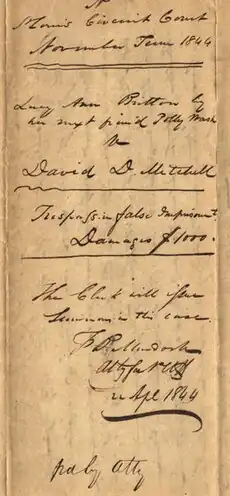 St Louis Circuit Court
November Term 1844
Lucy Ann Britton by
her next friend Polly Wash
v
David D. Mitchell
Trespass in false Imprisonmt
Damages $1000.
The Clerk will issue
Summons in this case
F B Murdoch
Atty for Plff
Apl 1844
pd by Atty